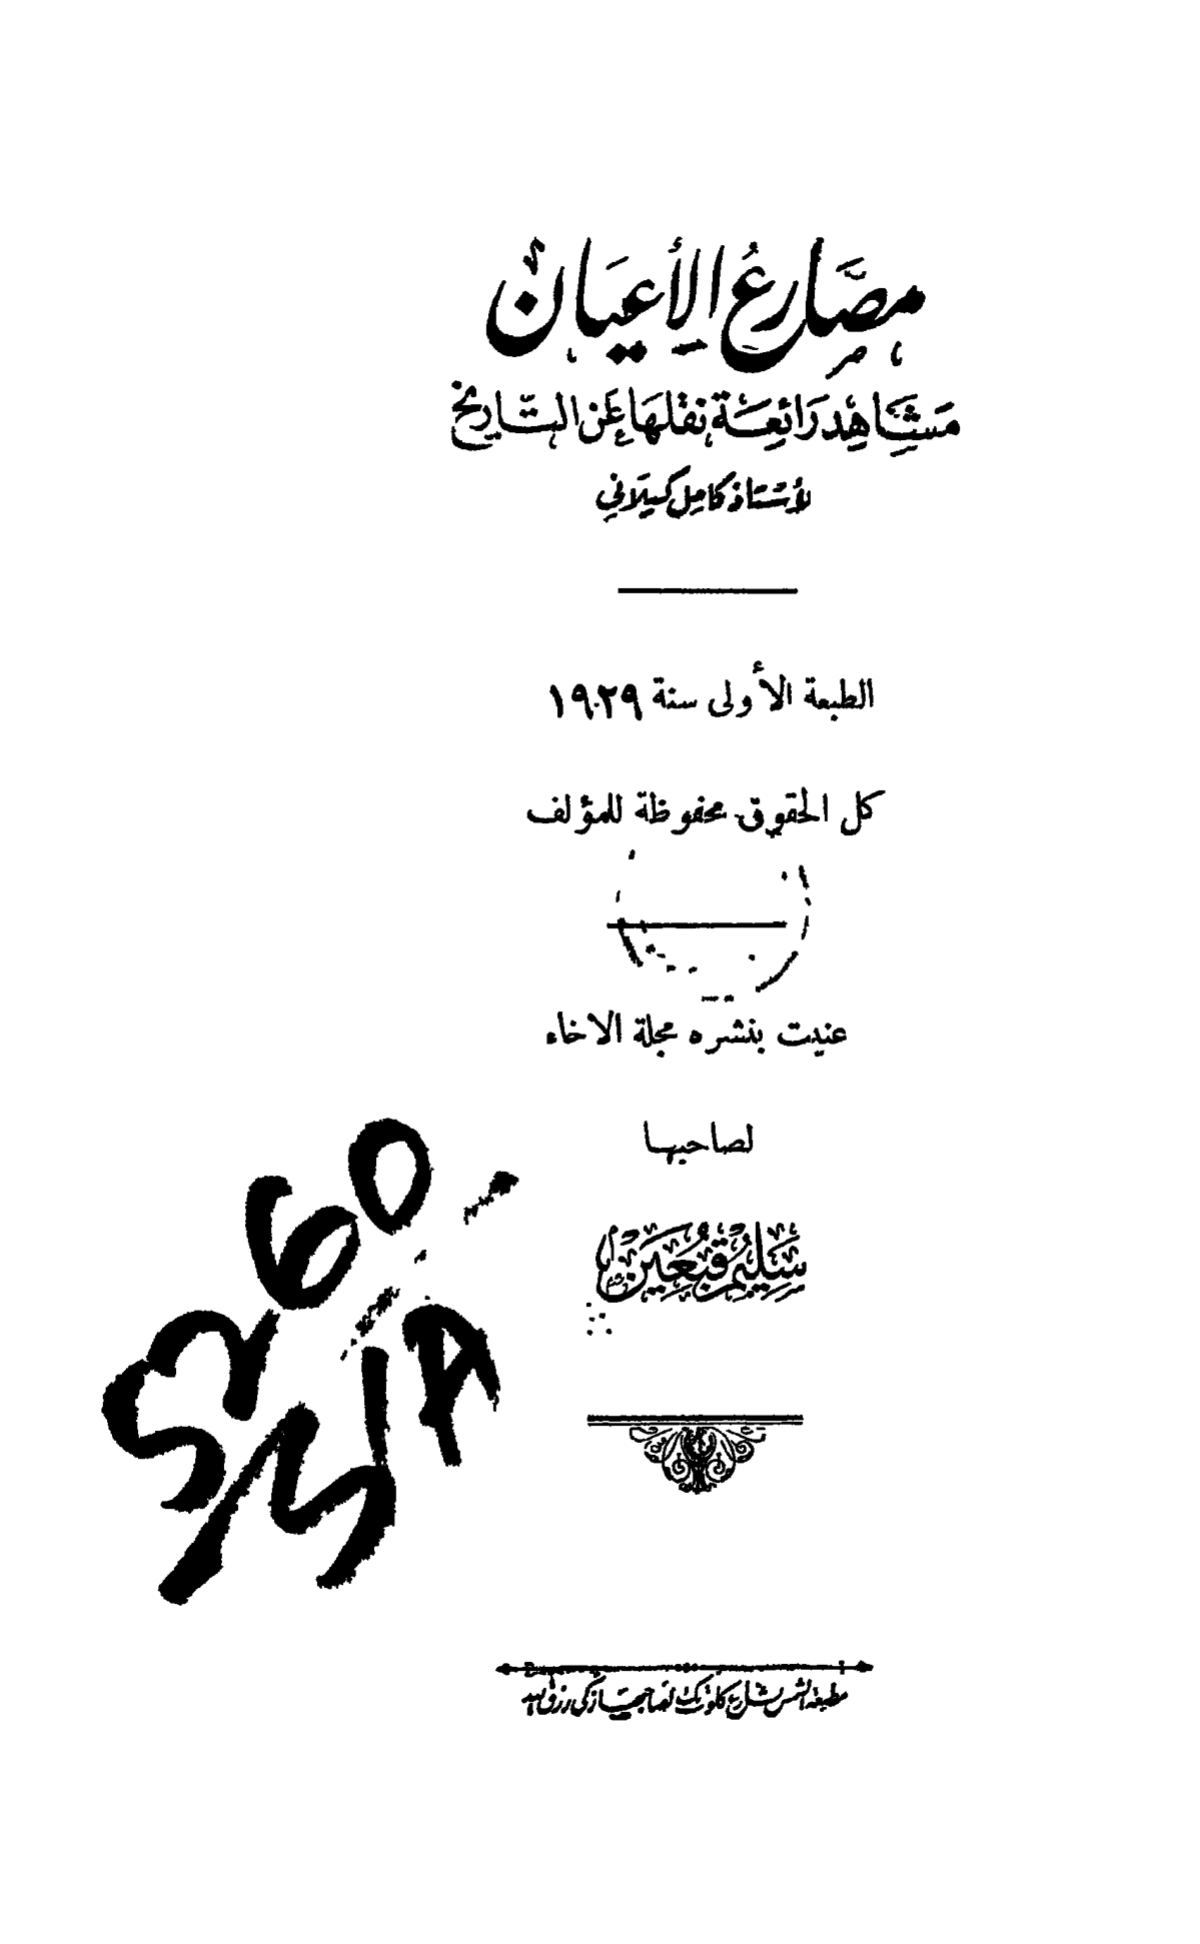 مصارع الأعيان
مشاهد رائعة نقلها عن التاريخ
الأستاذ كامل كيلاني
الطبعة الأولى سنة ١٩٢٩
كل الحقوق محفوظة للمؤلف
عنيت بنشره مجلة الاخاء
لصاحبها
سليم قبعين
مطبعة الشمس بشارع كلوت بك لصاحبها زكي رزق الله